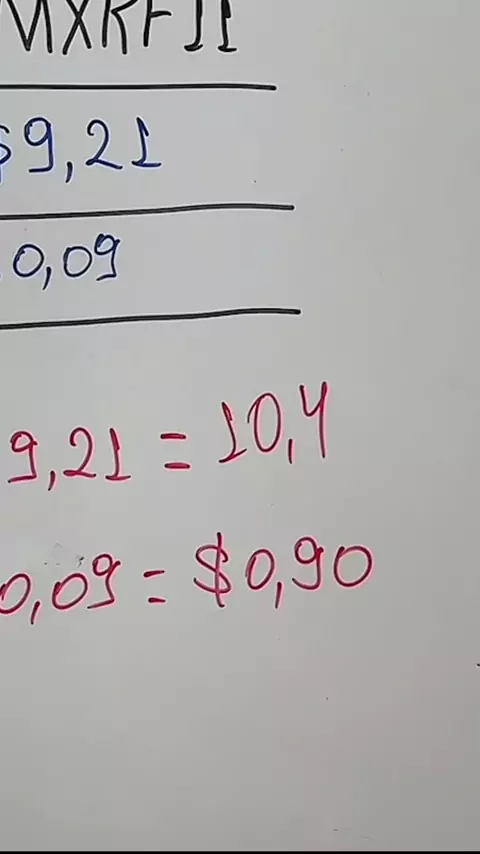 MXRF11
$9,21
0,09
9,21 = 10,4
0,09 = $0,90